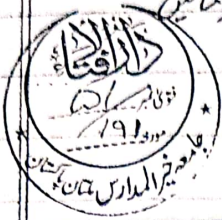 دارالافتاء
فتویٰ نمبر ۱۵۱
مورخہ ۱۹۱
جامعہ خیر المدارس ملتان پاکستان